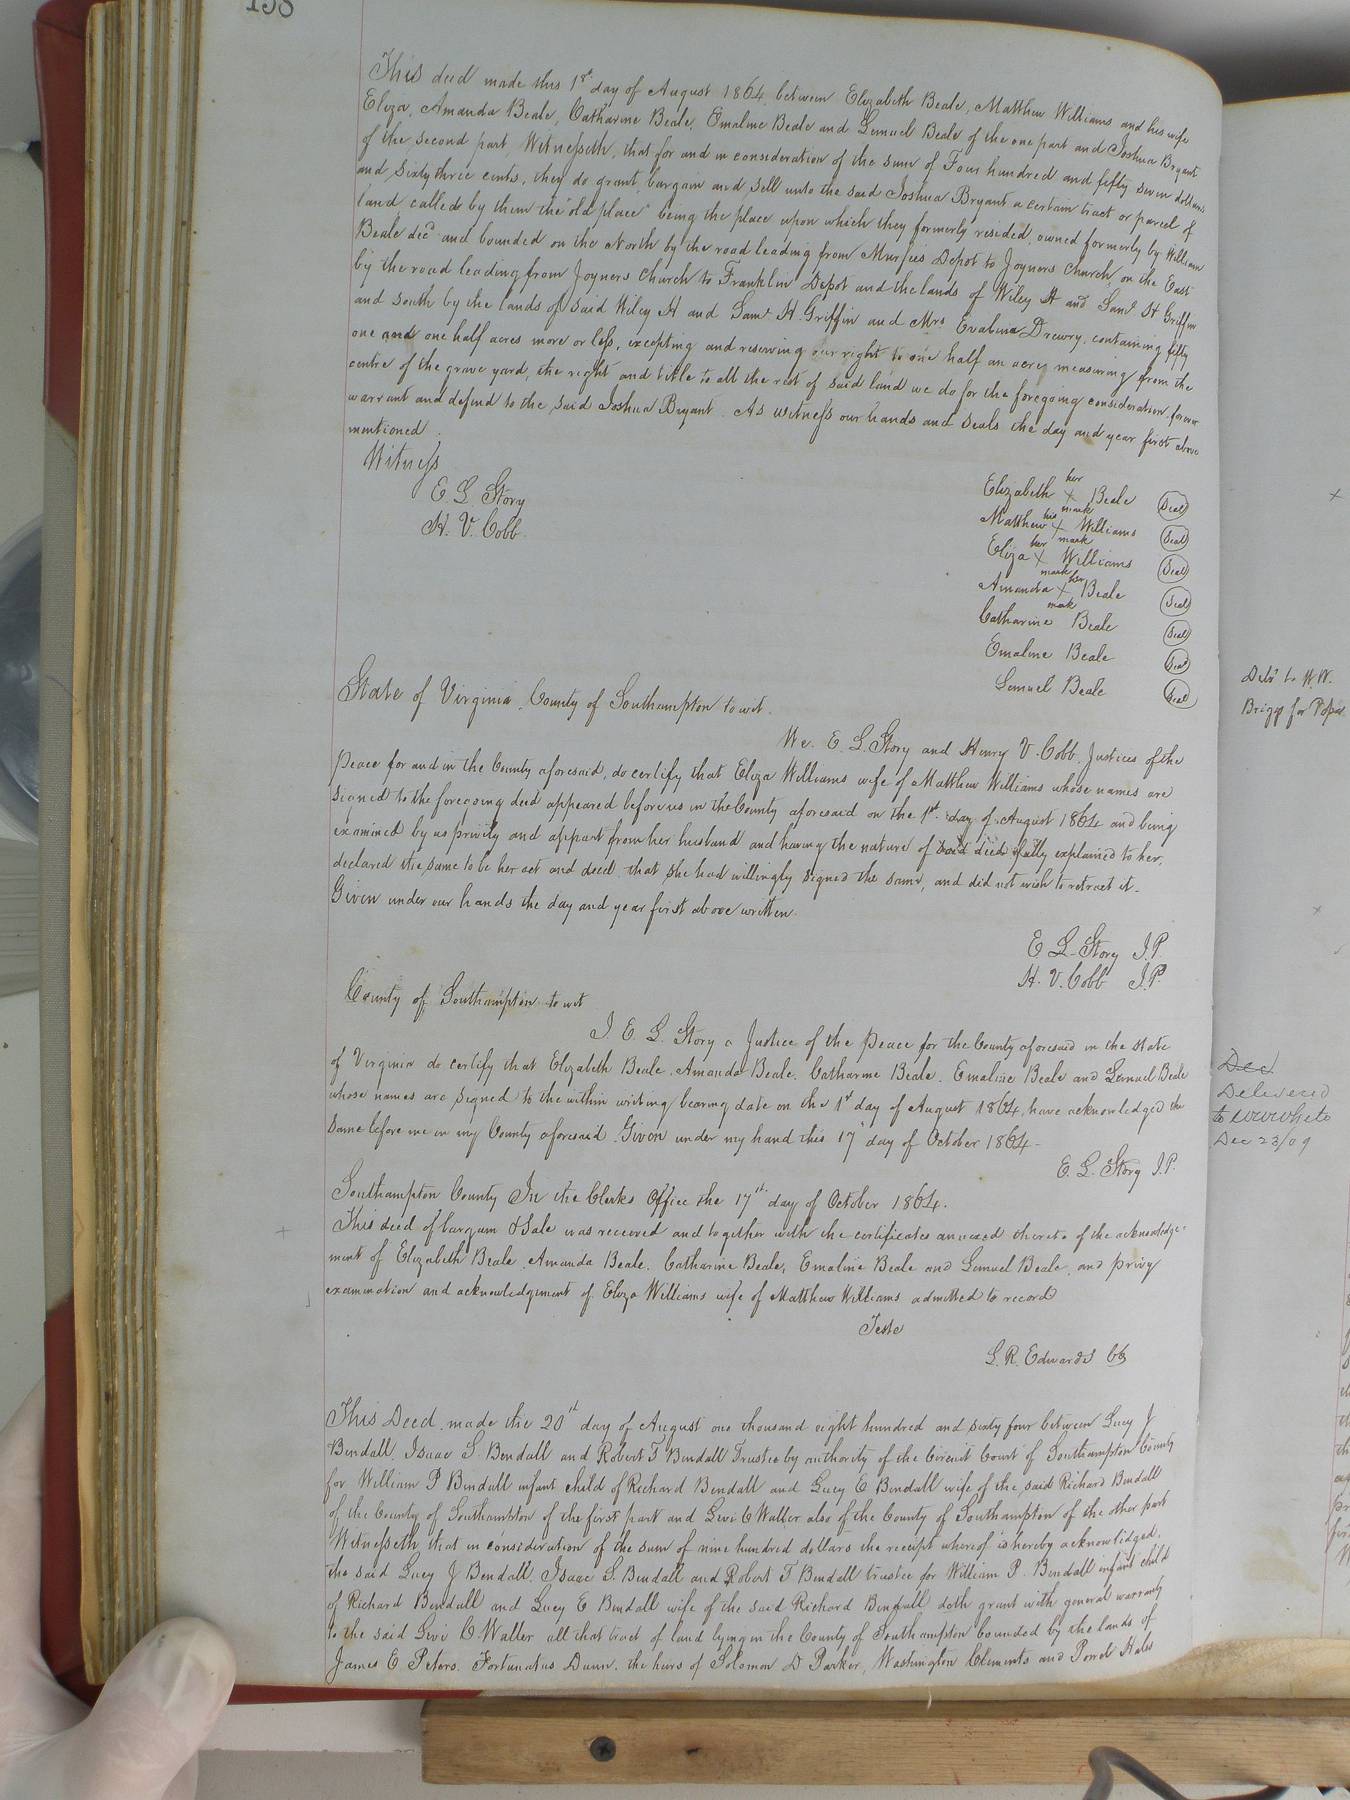 158
This deed made this 1st day of August 1864, between Elizabeth Beale, Matthew Williams and his wife
Eliza, Amanda Beale, Catharine Beale, Emaline Beale and Lemuel Beale of the one part and Joshua Bryant
of the second part, Witnesseth, that for and in consideration of the sum of Four hundred and fifty seven dollars
and sixty three cents, they do grant, bargain and sell unto the said Joshua Bryant a certain tract or parcel of
land called by them the "old place" being the place upon which they formerly resided, owned formerly by William
Beale decd and bounded on the North by the road leading from Murfees Depot to Joyners Church, on the East
by the road leading from Joyners Church to Franklin Depot and the lands of Wiley H and Saml H Griffin
and South by the lands of said Wiley H and Saml H. Griffin and Mrs Evalina Drewry, containing fifty
one and one half acres more or less, excepting and reserving our right to one half an acre, measuring from the
centre of the grave yard, the right and title to all the rest of said land we do for the foregoing consideration forever
warrant and defend to the said Joshua Bryant. As witness our hands and seals the day and year first above
mentioned.
Witness
E L Story
H. V. Cobb
Elizabeth her X mark Beale Seal
Matthew his X mark Williams Seal
Eliza her X mark Williams Seal
Amanda her X mark Beale Seal
Catharine Beale Seal
Emaline Beale Seal
Lemuel Beale Seal
State of Virginia, County of Southampton to wit.
We. E. L. Story and Henry V. Cobb, Justices of the
Peace for and in the County aforesaid, do certify that Eliza Williams wife of Matthew Williams whose names are
signed to the foregoing deed appeared before us in the County aforesaid on the 1st day of August 1864 and being
examined by us privily and appart from her husband and having the nature of said deed fully explained to her,
declared the same to be her act and deed, that she had willingly signed the same, and did not wish to retract it.
Given under our hands the day and year first above written.
E L Story J.P.
H. V. Cobb J.P.
County of Southampton to wit
I E. L. Story a Justice of the Peace for the County aforesaid in the state
of Virginia do certify that Elizabeth Beale, Amanda Beale, Catharine Beale, Emaline Beale and Lemuel Beale
whose names are signed to the within writing bearing date on the 1st day of August 1864, have acknowledged the
same before me in my County aforesaid. Given under my hand this 17 day of October 1864.
E. L. Story J.P.
Southampton County In the Clerks Office the 17th day of October 1864.
This deed of bargain & Sale was received and together with the certificates annexed thereto of the acknowledge-
ment of Elizabeth Beale, Amanda Beale, Catharine Beale, Emaline Beale and Lemuel Beale, and privy
examination and acknowledgement of Eliza Williams wife of Matthew Williams admitted to record
Teste
L. R. Edwards Clk
This Deed made the 20th day of August one thousand eight hundred and sixty four between Lucy J
Bendall, Isaac S. Bendall and Robert T Bendall Trustee by authority of the Circuit Court of Southampton County
for William P Bendall infant child of Richard Bendall and Lucy E Bendall wife of the said Richard Bendall
of the County of Southampton of the first part and Levi C Waller also of the County of Southampton of the other part
Witnesseth that in consideration of the sum of nine hundred dollars the receipt whereof is hereby acknowledged,
the said Lucy J Bendall, Isaac S. Bendall and Robert T Bendall trustee for William P. Bendall infant child
of Richard Bendall and Lucy E Bendall wife of the said Richard Bendall doth grant with general warranty
to the said Levi C Waller all that tract of land lying in the County of Southampton bounded by the lands of
James E Peters, Fortunatus Dunn, the heirs of Solomon D Parker, Washington Clements and
Deld to W.W.
Briggs for
Dec
Delivered
to
Dec 23/09